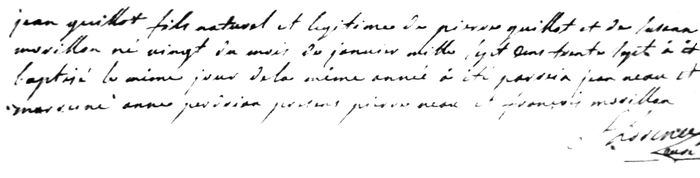 jean guillot fils naturel et legitime de pierre guillot et de susan
morillon né vingt du mois de janvier mille sept cens trente sept à èté
baptisé le même jour de la même année à èté parrein jean neau et
marreine anne presens pierre neau et françois morillon
curé